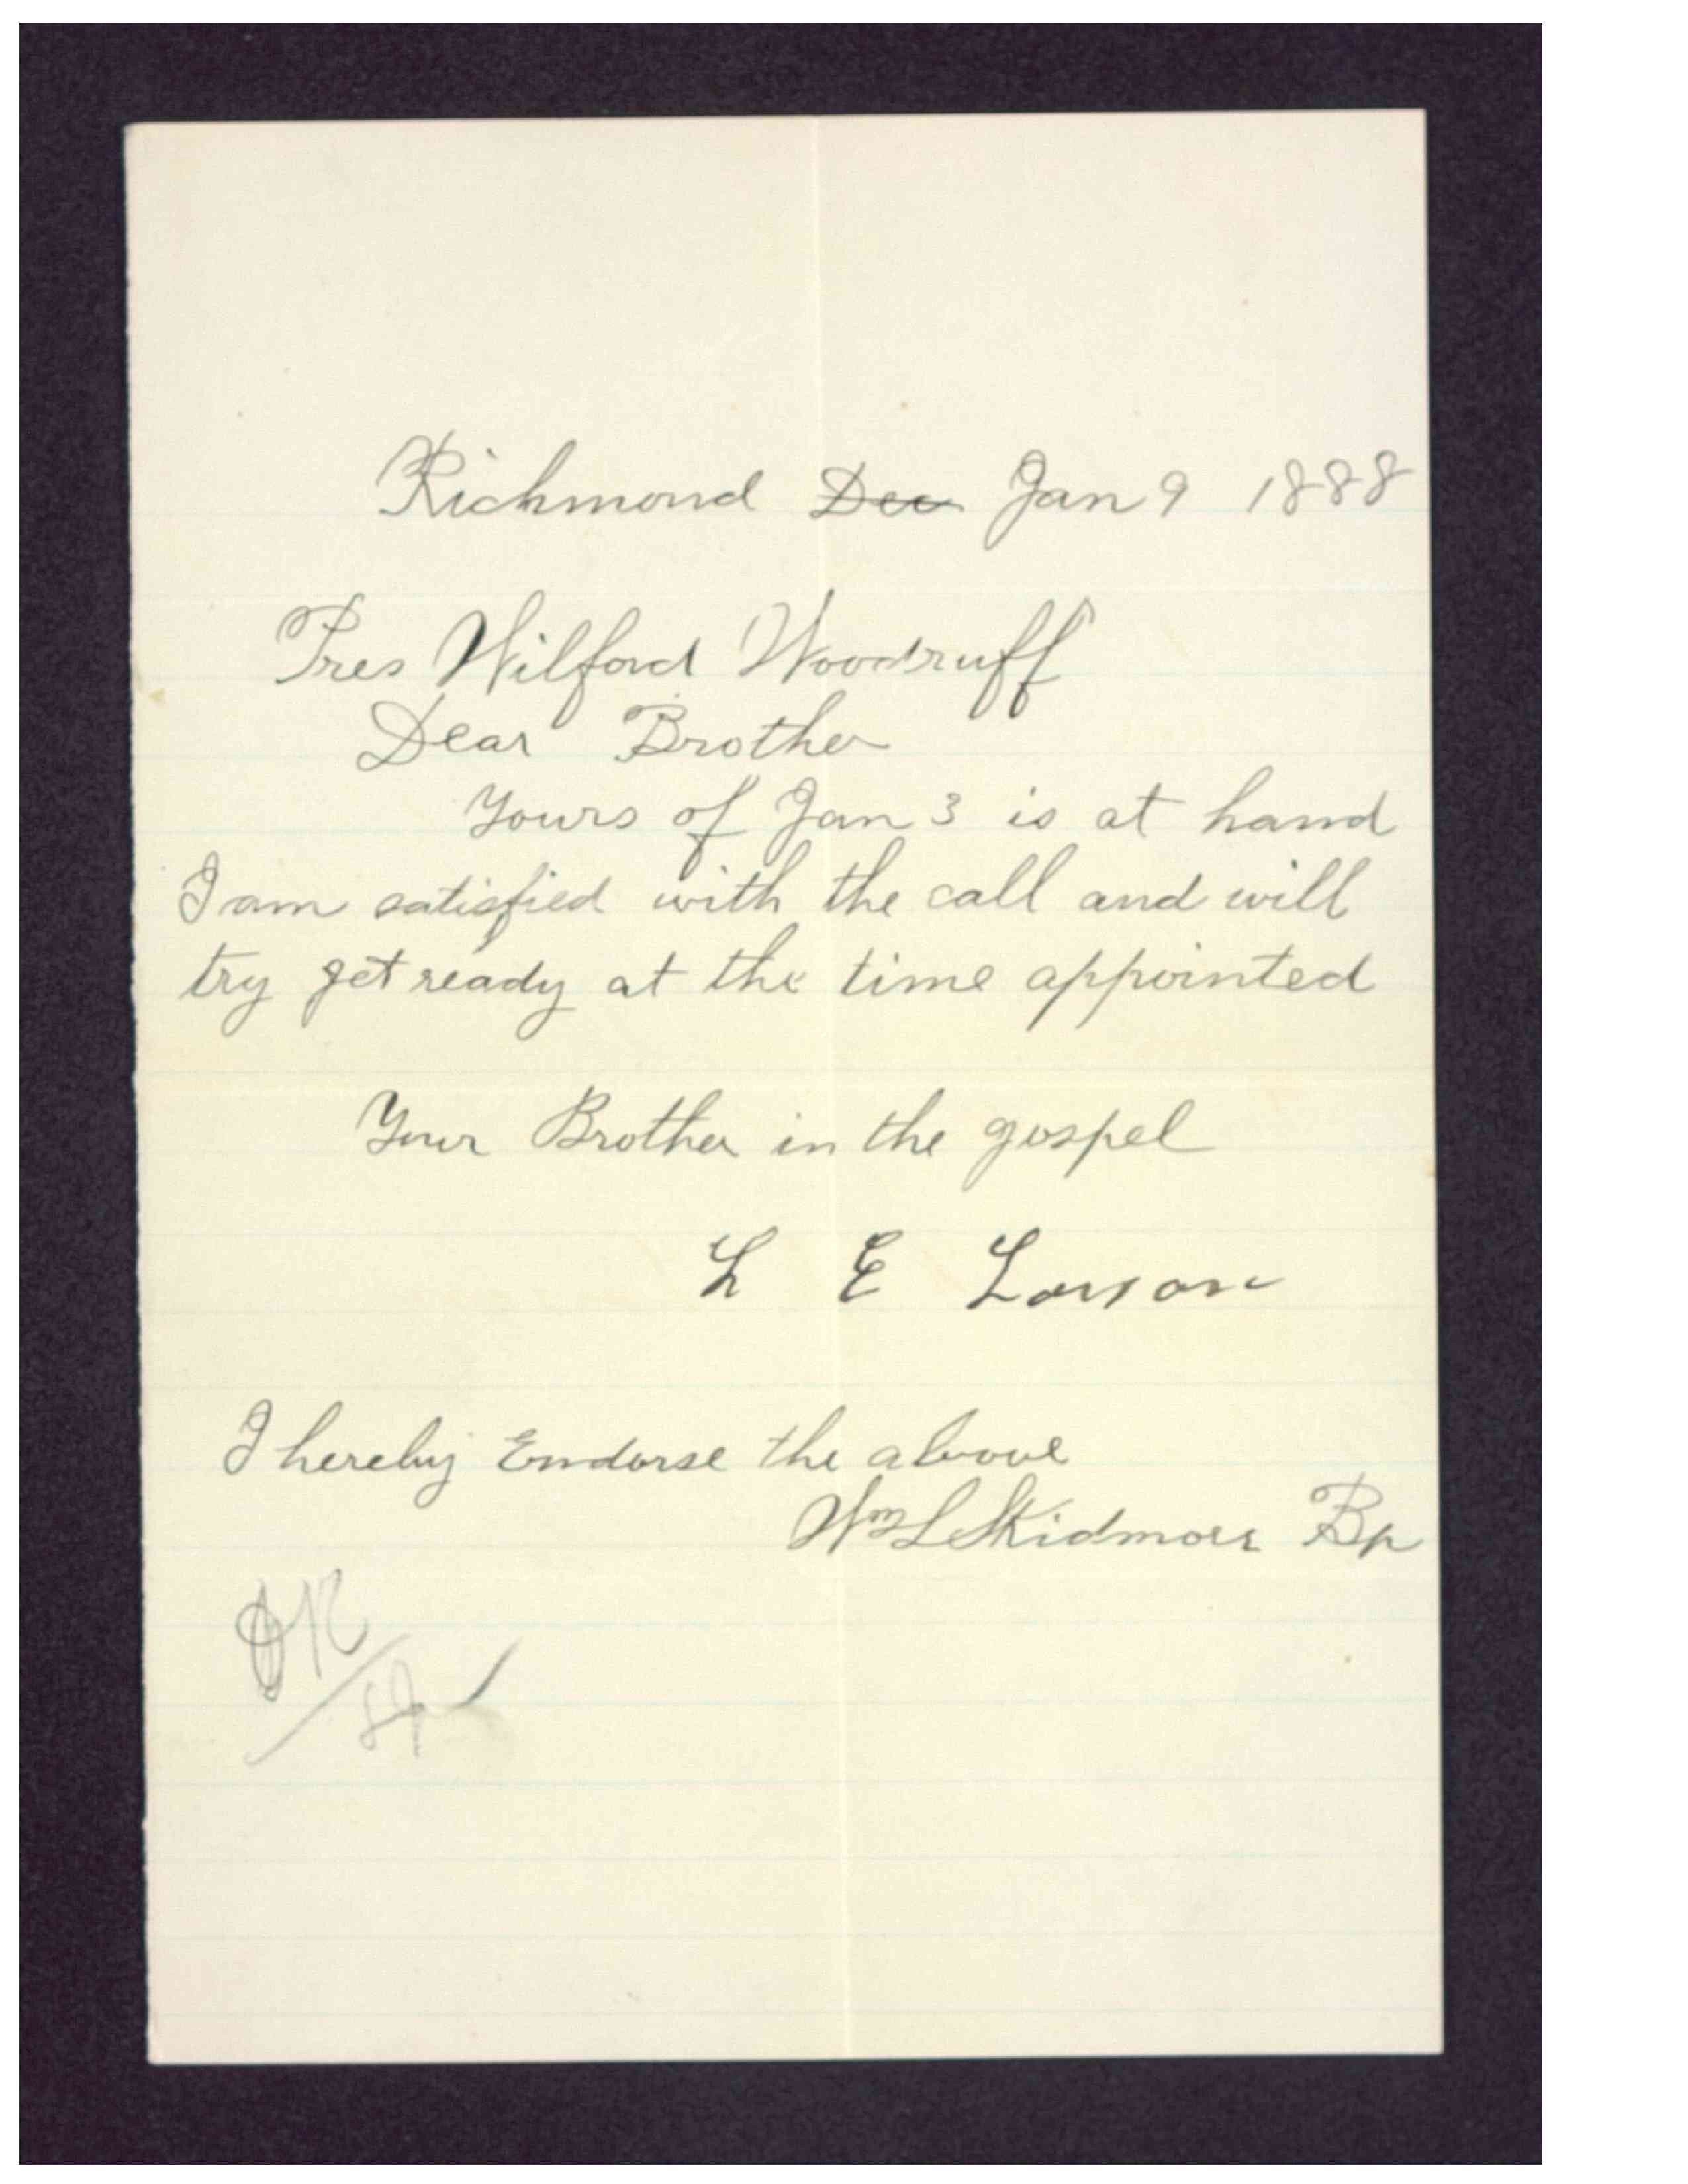 Richmond Dec Jan 9 1888
Pres Wilford Woodruff
Dear Brother
Yours of Jan 3 is at hand
I am satisfied with the call and will
try get ready at the time appointed
Your Brother in the gospel
L E Larson
I hereby Endorse the above
Wm L Skidmore Bp
OK